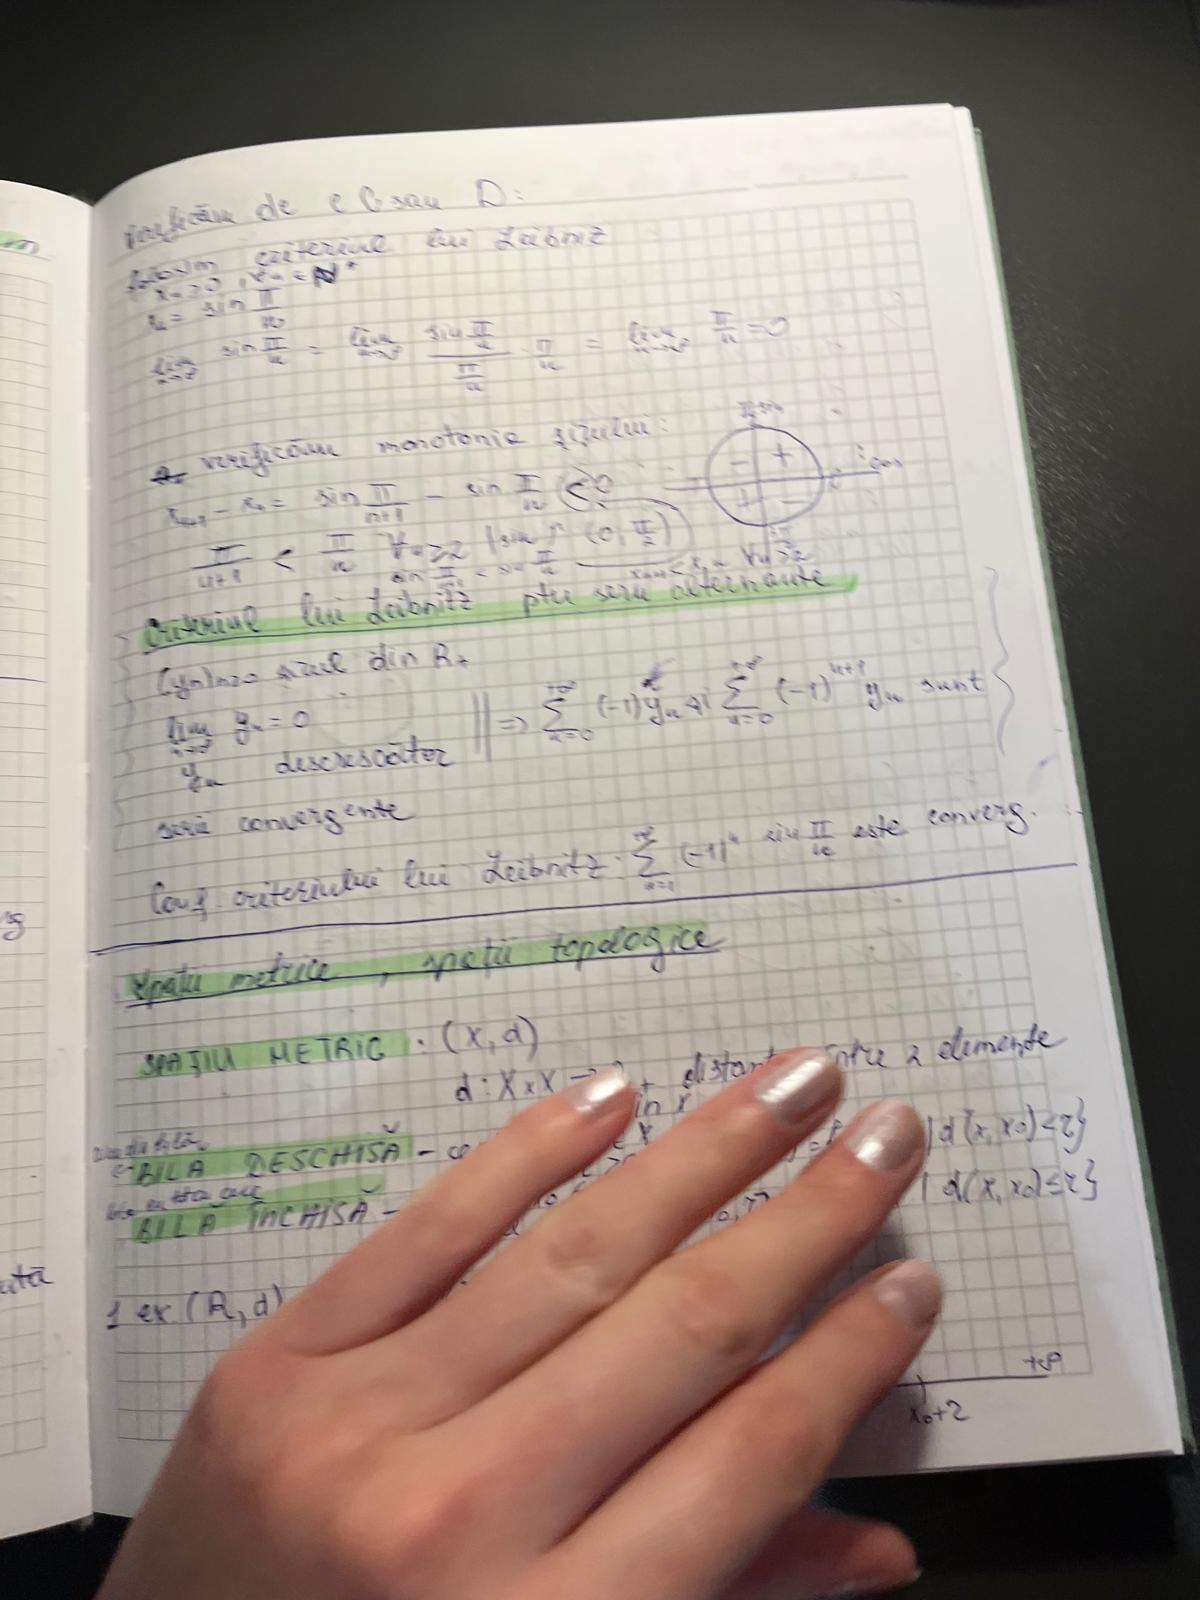 verificăm de e C sau D:
folosim criteriul lui Leibnitz
xₙ ≥ 0, ∀n ∈ ℕ*
xₙ = sin π/n
lim n→∞ sin π/n = lim n→∞ (sin π/n)/(π/n) · π/n = lim n→∞ π/n = 0
verificăm monotonia șirului:
xₙ₊₁ - xₙ = sin π/(n+1) - sin π/n < 0
π/(n+1) < π/n ∀n≥2 (0, π/2)
sin π/(n+1) < sin π/n xₙ₊₁ < xₙ ∀n≥2
- + cos
+ -
Criteriul lui Leibnitz ptr serii alternante
(yₙ)n≥0 șirul din R₊
lim n→∞ yₙ = 0 || => +∞ Σ n=0 (-1)ⁿ yₙ și +∞ Σ n=0 (-1)ⁿ⁺¹ yₙ sunt
yₙ descrescător
serii convergente
Conf. criteriului lui Leibnitz: +∞ Σ n=1 (-1)ⁿ sin π/n este converg.
Spații metrice, spații topologice
SPAȚIU METRIC : (X, d)
d : X × X → distanț între 2 elemente
in X
BILA DESCHISĂ - | d(x, x₀) < r}
BILĂ ÎNCHISĂ - | d(x, x₀) ≤ r}
1 ex (R, d)
+∞
x₀+2